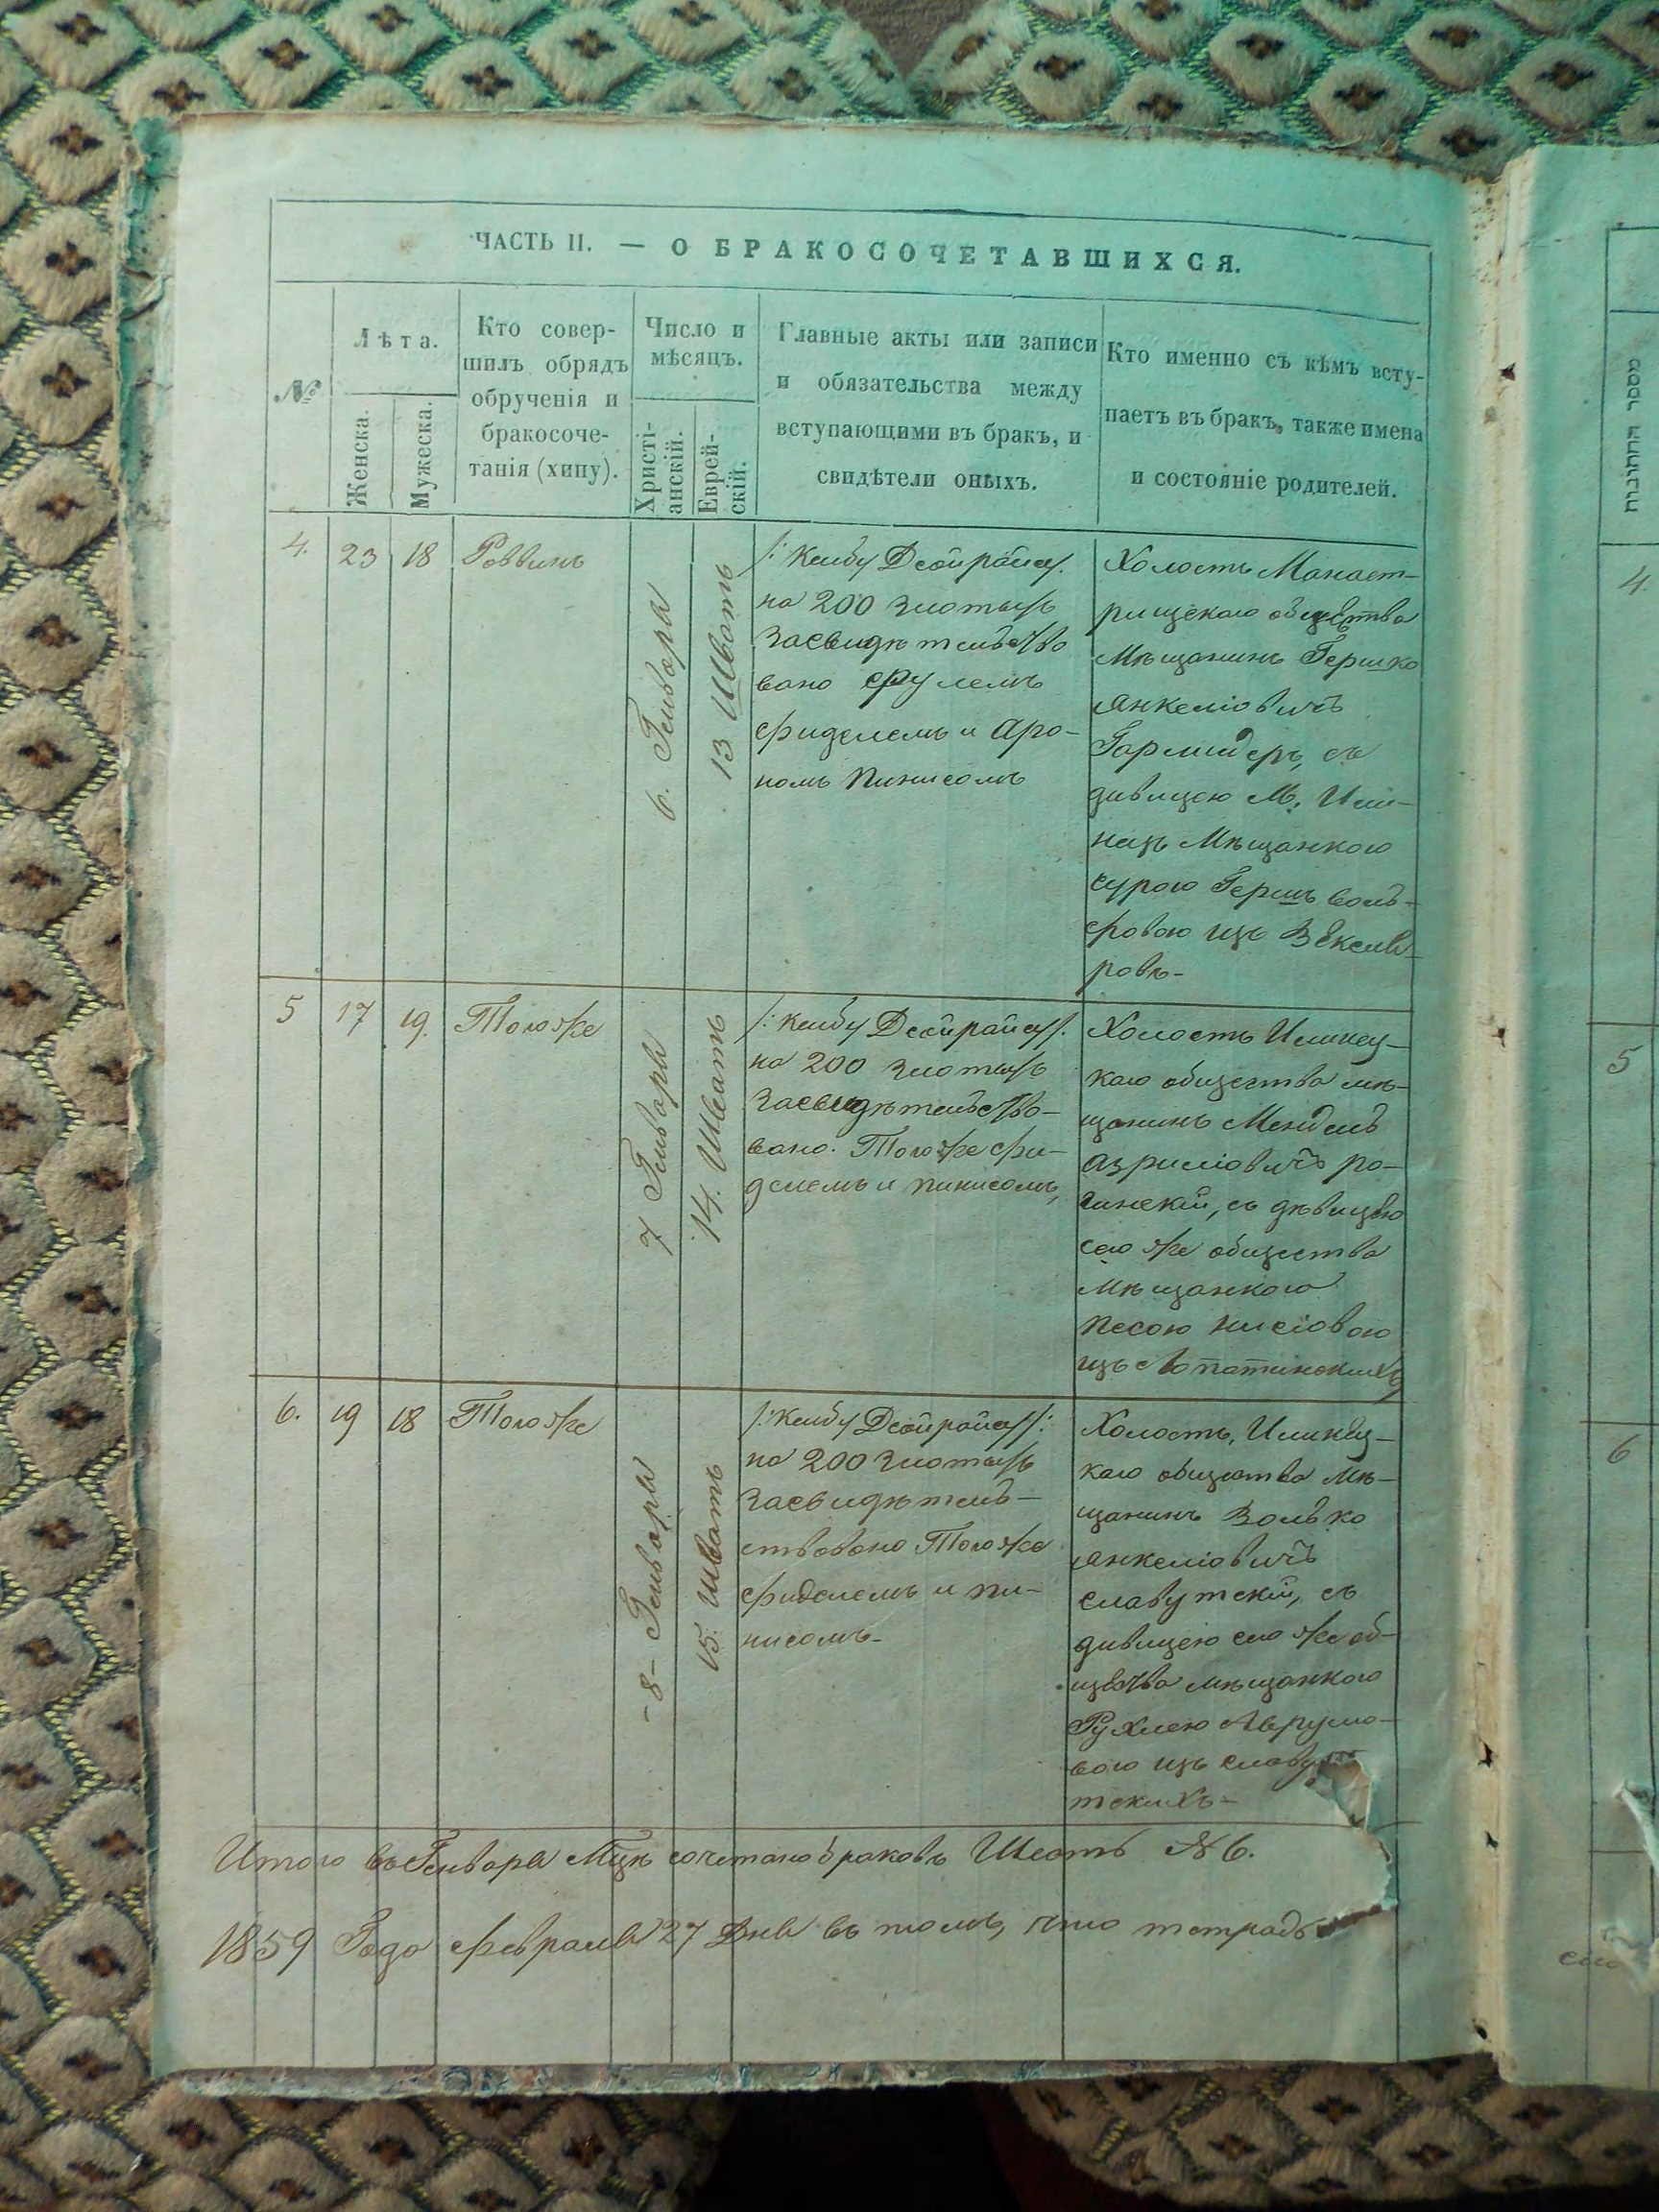 ЧАСТЬ II. — О БРАКОСОЧЕТАВШИХСЯ.
№
Лѣта.
Женска.
Мужеска.
Кто совер-
шилъ обрядъ
обрученія и
бракосоче-
танія (хипу).
Число и
мѣсяцъ.
Христі-
анскій.
Еврей-
скій.
Главные акты или записи
и обязательства между
вступающими въ бракъ, и
свидѣтели оныхъ.
Кто именно съ кѣмъ всту-
паетъ въ бракъ, также имена
и состояніе родителей.
4.
23
18
Раввинъ
6. Генваря
13 Шватъ
на 200 злотыхъ
засвидѣтельство
вано Срулемъ
Фиделемъ и Аро-
номъ Пинисомъ
Холостъ Манаст-
рищскаго общества
Мѣщанинъ Гершко
Янкеліовичъ
съ
дивицею М. Илин-
нецъ Мѣщанкою
Сурою Гершъ Воль-
фовою изъ Векслѣ-
ровъ-
5
17
19.
Тогоже
7 Генваря
14. Шватъ
на 200 злотыхъ
засвидѣтельство-
вано. Тогоже Фи-
делемъ и Пинисомъ,
Холостъ Илинец-
каго общества мѣ-
щанинъ Мендель
Азриліовичъ Ро-
гинскій, съ дѣвицею
сего же общества
Мѣщанкою
Песою Нисіовою
изъ Лопатинскихъ
6.
19
18
Тогоже
- 8 - Генваря
15. Шватъ
на 200 злотыхъ
засвидѣтель-
ствовано Тогоже
Фиделемъ и Пи-
нисомъ-
Холостъ, Илинец-
каго общества мѣ-
щанинъ Волько
Янкеліовичъ
Славутскій, съ
дивицею сего же об-
щества мѣщанкою
Рухлею Аврумо-
вою изъ Славу
тскихъ-
Итого въ Генваря Мцѣ сочетано браковъ Шесть №6.
1859 Года Февраля 27 Дня въ томъ, что тетрадь
מספר החתונות
4.
5
6